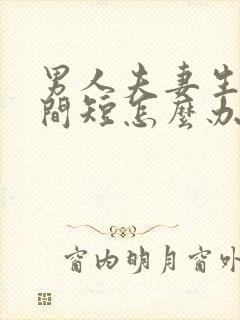 男人夫妻生
間短怎麼办
窗内明月窗外